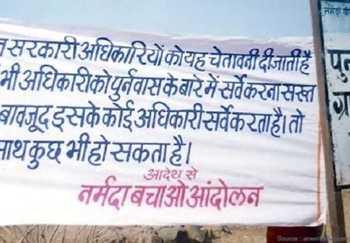 सरकारी अधिकारियों को यह चेतावनी दी जाती है
भी अधिकारी को पुर्नवास के बारे में सर्वे करना सख्त
बावजूद इसके कोई अधिकारी सर्वे करता है। तो
साथ कुछ भी हो सकता है।
आदेश से
नर्मदा बचाओ आंदोलन